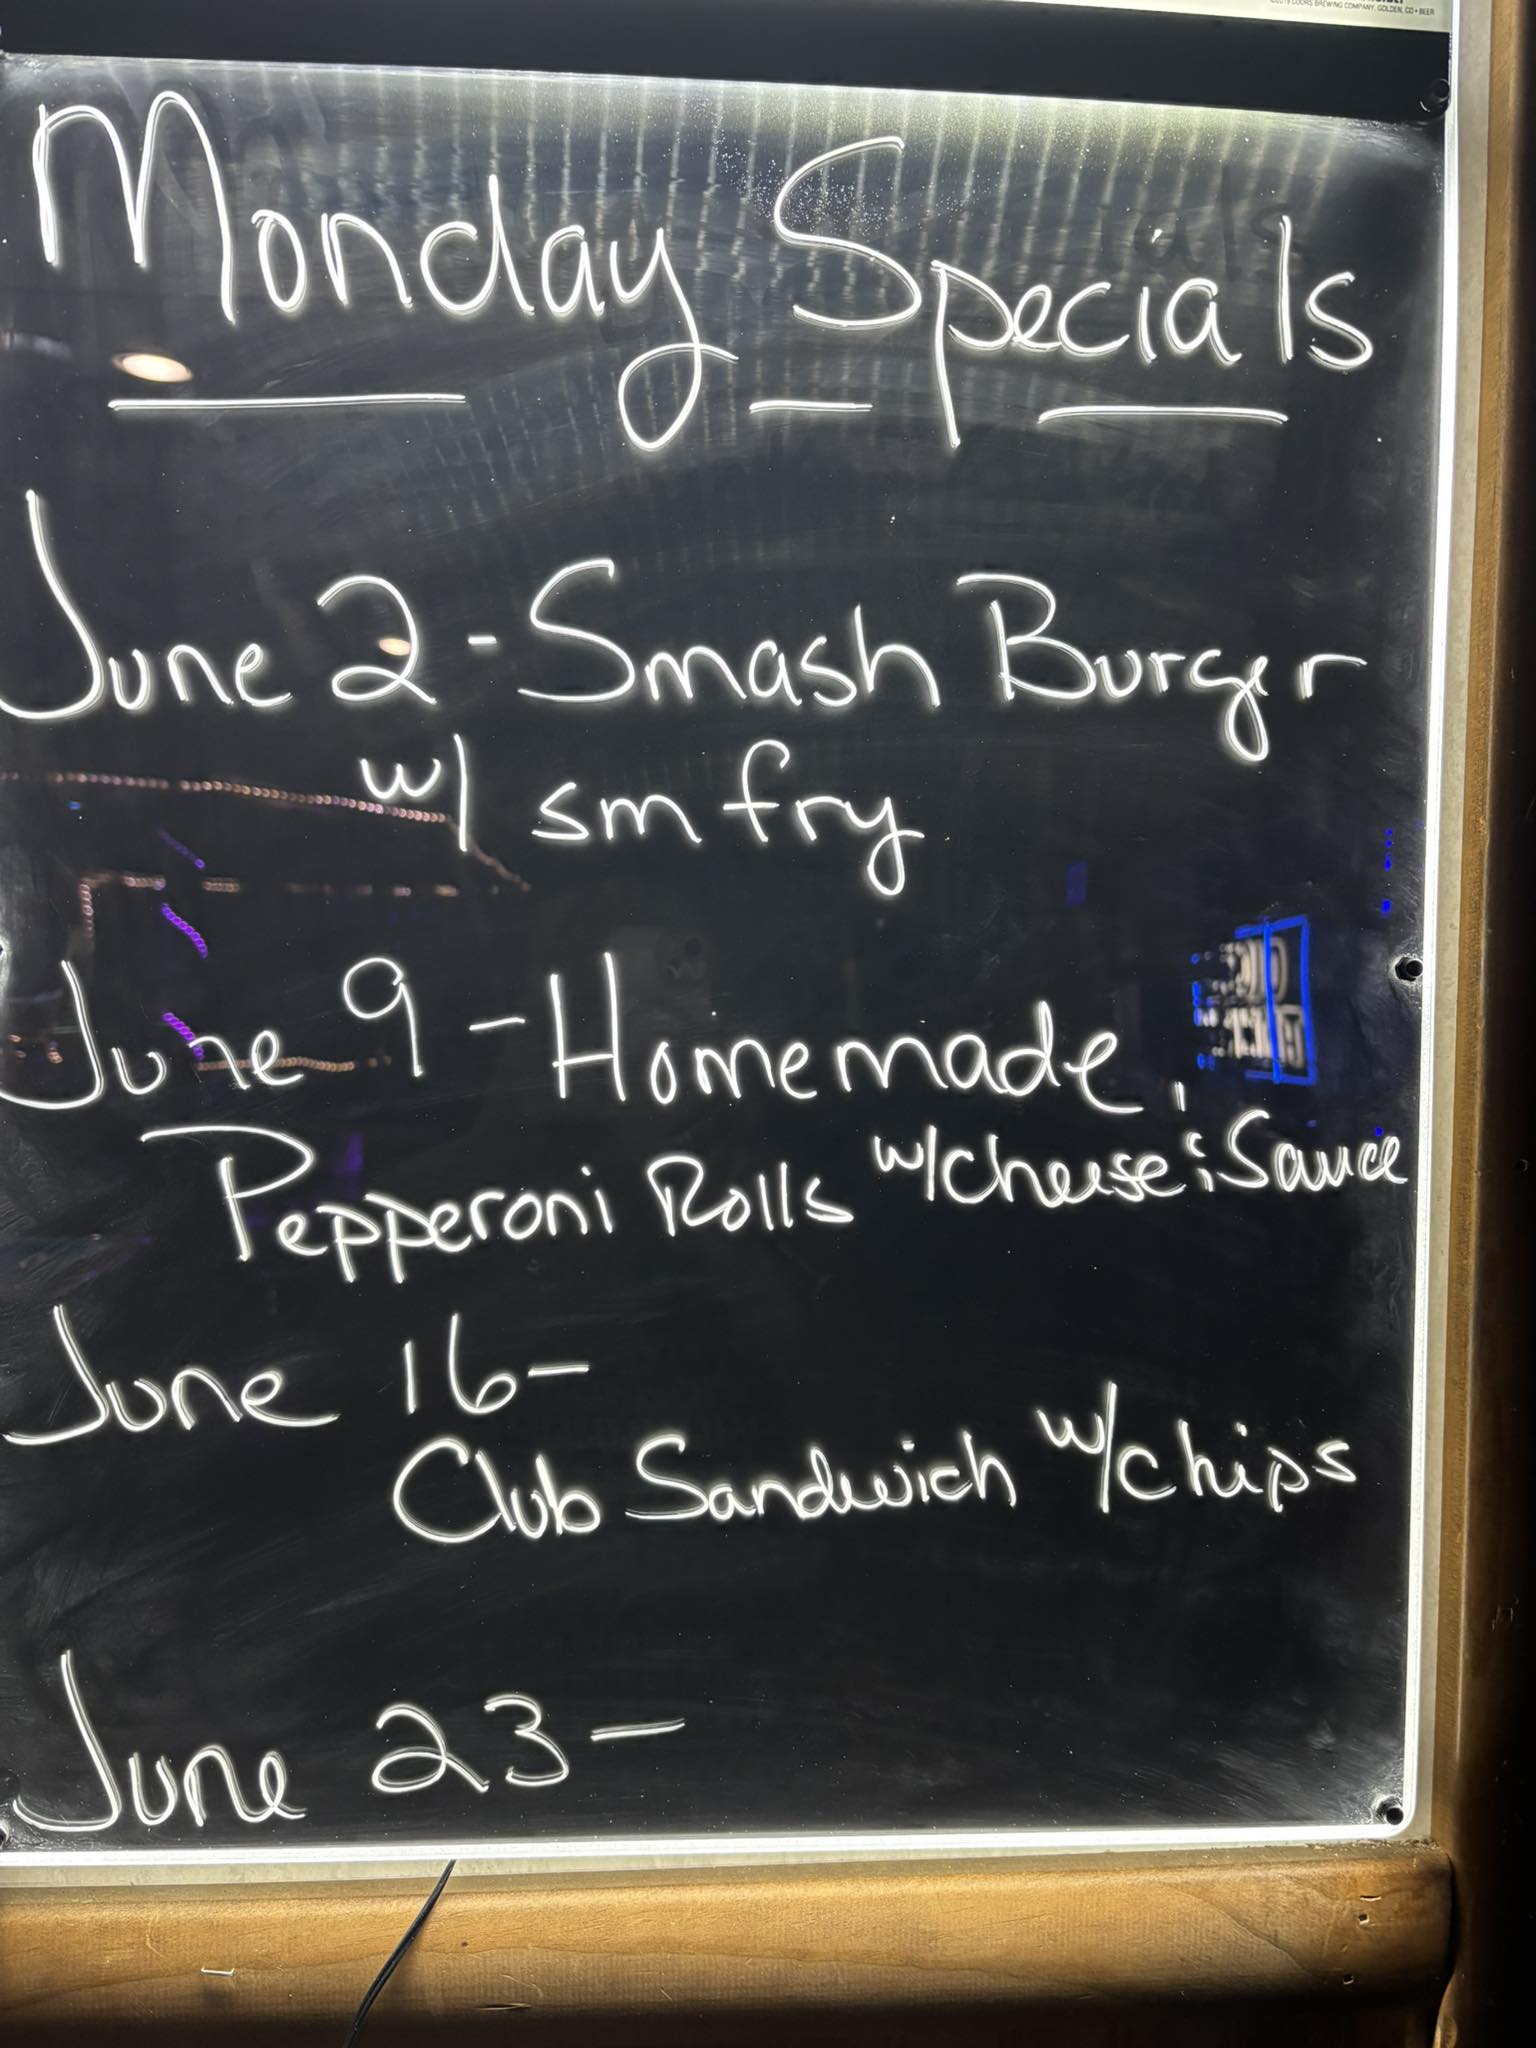 ©2019 COORS BREWING COMPANY, GOLDEN, CO • BEER
Monday Specials
June 2 - Smash Burger
w/ sm fry
June 9 - Homemade
Pepperoni Rolls w/cheese & Sauce
June 16 -
Club Sandwich w/chips
June 23 -